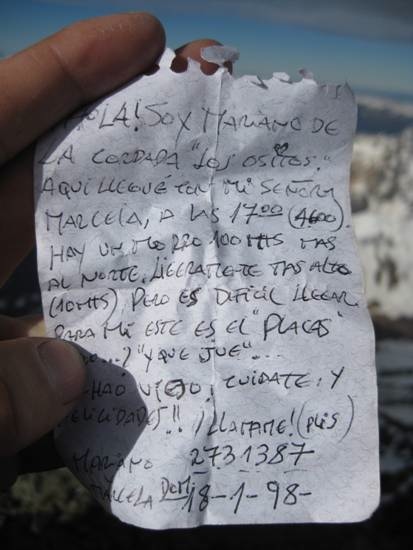 HOLA! SOY MARIANO DE
LA CORDADA "LOS OSITOS."
AQUI LLEGUÉ CON MI SEÑORA
MARCELA, A LAS 17:00
HAY UN MO RRO 100 MTS MAS
AL NORTE, LIGERAMETE MAS ALTO
(10 MTS) PERO ES DIFICIL LLEGAR
PARA MI ESTE ES EL "PLACAS"
"Y QUE JUE"...
CHAO VIEJO, CUIDATE, Y
FELICIDADES!! ¡LLAMAME! (PLIS)
MARIANO 2731387
MARCELA 18-1-98-